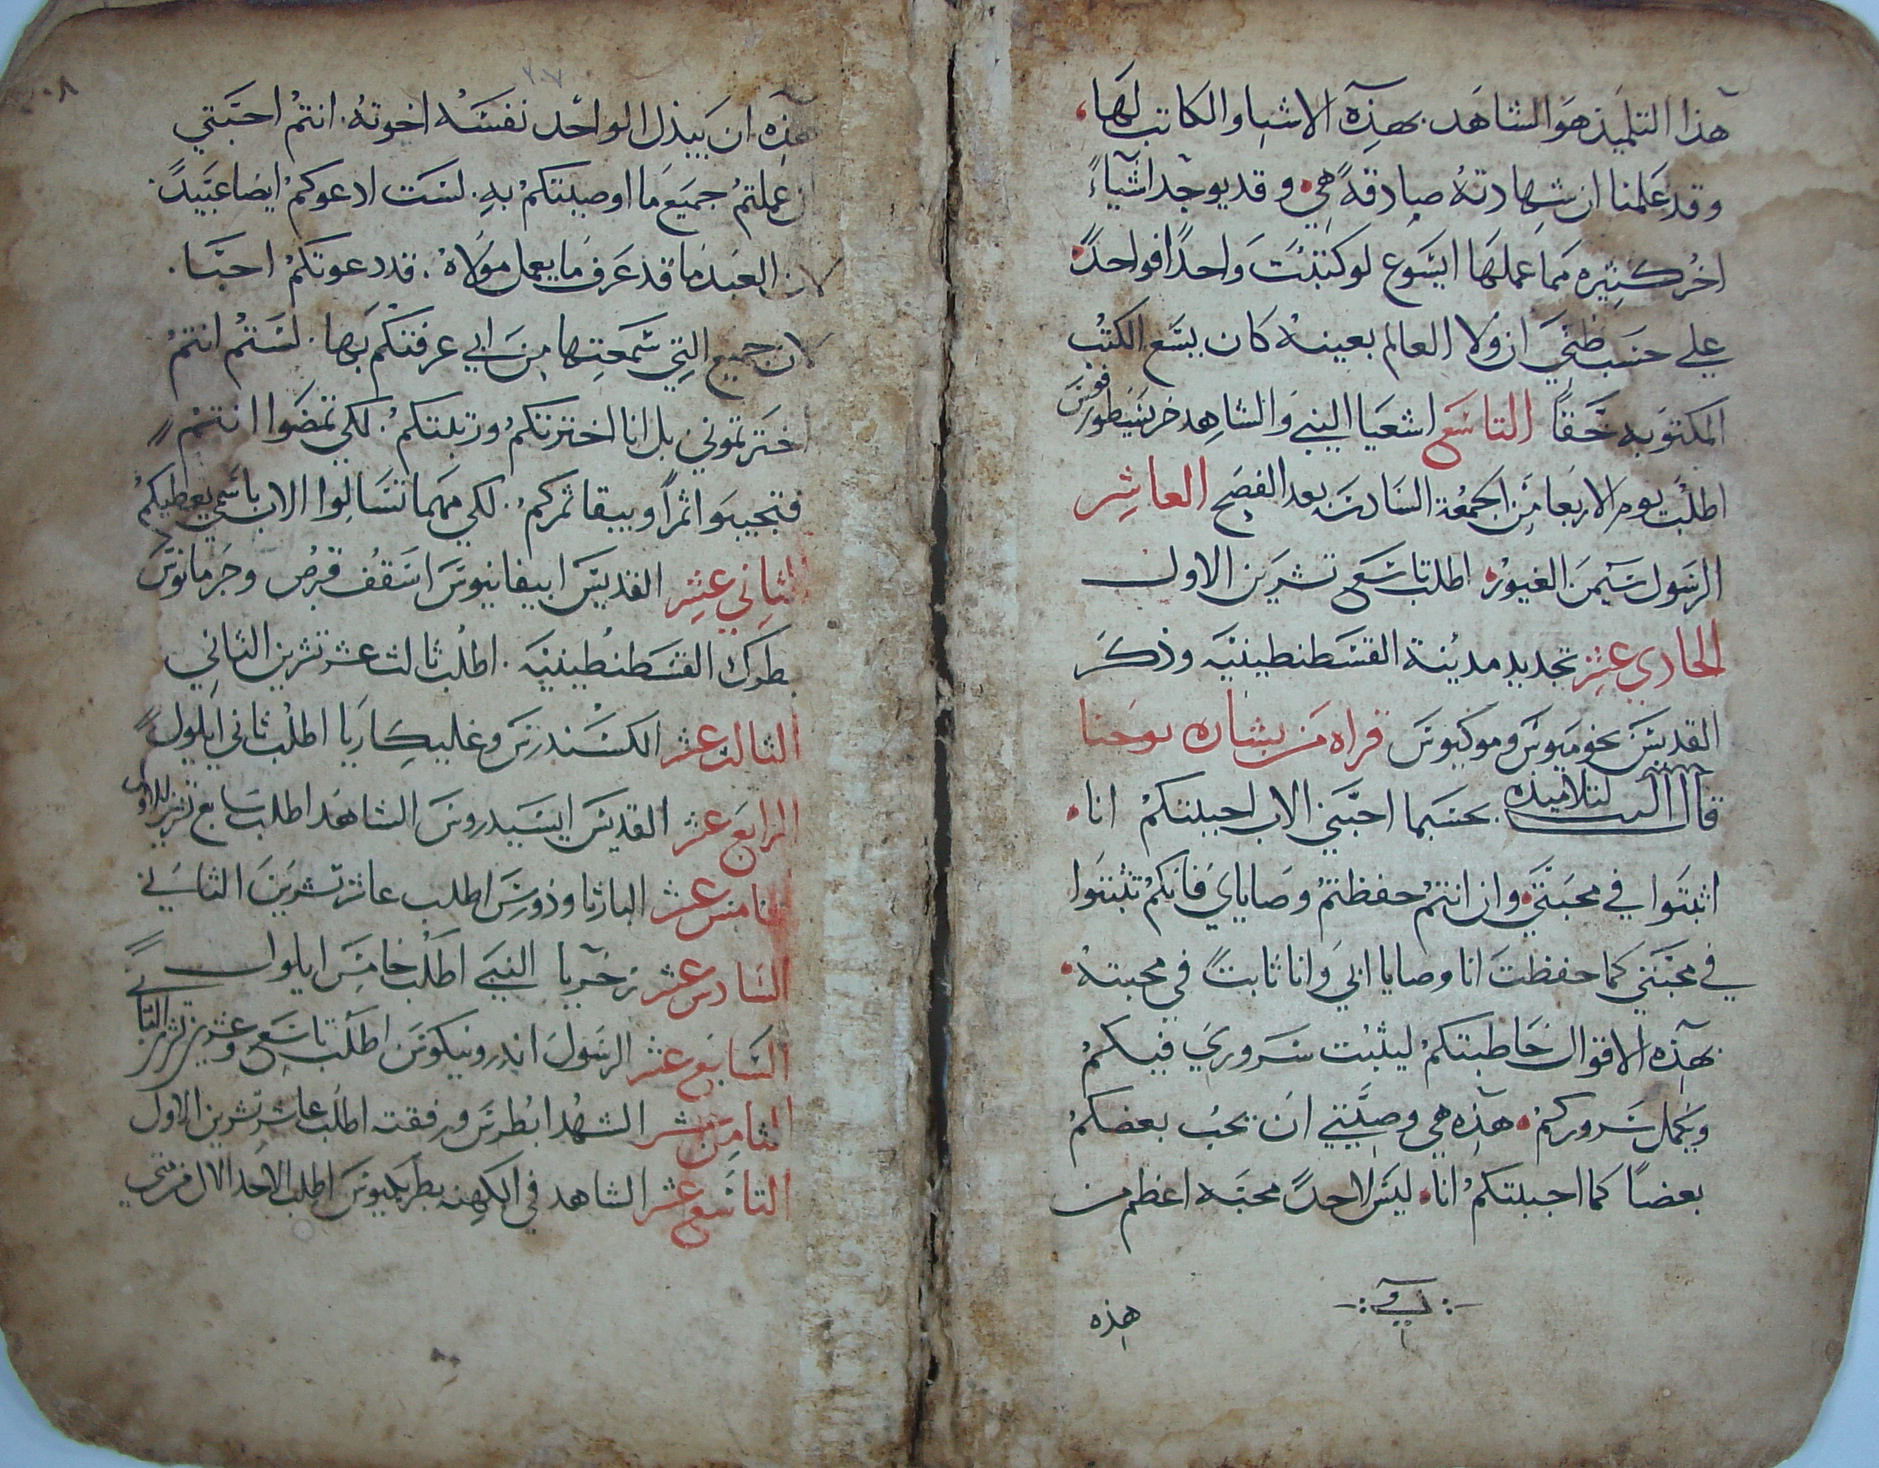 هذا التلميذ هو الشاهد بهذه الاشيا والكاتب لها
وقد علمنا ان شهادته صادقةً هي وقد يوجد اشياءً
اخر كثيره مما عملها ايسوع لو كتبت واحدًا فواحدً
على حسب ظني ان ولا العالم بعينه كان يسع الكتب
المكتوبه حقًا التاسع اشعيا النبي والشاهد خريسطوفرس
اطلب يوم الاربعا من الجمعة السادسه بعد الفصح العاشر
الرسول سيمن الغيور اطلب تاسع تشرين الاول
الحادي عشر تجديد مدينة القسطنطينيه وذكر
القديس موكيوس قراه من بشاره يوحنا
قال الرب لتلاميذه بحسبما احبني الاب احببتكم انا
اثبتوا في محبتي وان انتم حفظتم وصاياي فانكم تثبتوا
في محبتي كما حفظت انا وصايا ابي وانا ثابتً في محبته
بهذه الاقوال خاطبتكم ليثبت سروري فيكم
ويكمل سروركم هذه هي وصيتي ان يحب بعضكم
بعضًا كما احببتكم انا ليس لاحدً محبه اعظم من
هذه
٢٠٧
٢٠٨
هذه ان يبذل الواحد نفسه اخوته انتم احبتي
ان عملتم جميع ما اوصيتكم به لست ادعوكم ايضا عبيدً
لان العبد ما قد عرف ما يعمل مولاه قد دعوتكم احبا
لان جميع التي سمعتها من ابي عرفتكم بها لستم انتم
اخترتموني بل انا اخترتكم ورتبتكم لكي تمضوا انتم
فتجيبوا ثمرًا ويبقا ثمركم لكي مهما تسالوا الاب باسمي يعطيكم
الثاني عشر القديس ابيفانيوس اسقف قبرص وجرمانوس
بطرك القسطنطينيه اطلب ثالث عشر تشرين الثاني
الثالث عشر الكسندرس وغليكاريا اطلب ثاني ايلول
الرابع عشر القديس ايسيدروس الشاهد اطلب سابع تشرين الاول
الخامس عشر البار ثاودورس اطلب عاشر تشرين الثاني
السادس عشر زخريا النبي اطلب خامس ايلول
السابع عشر الرسول اندرونيكوس اطلب تاسع وعشرين تشرين الثاني
الثامن عشر الشهدا بطرس ورفقته اطلب عاشر تشرين الاول
التاسع عشر الشاهد في الكهنه بطريكيوس اطلب الاحد الاول من متى